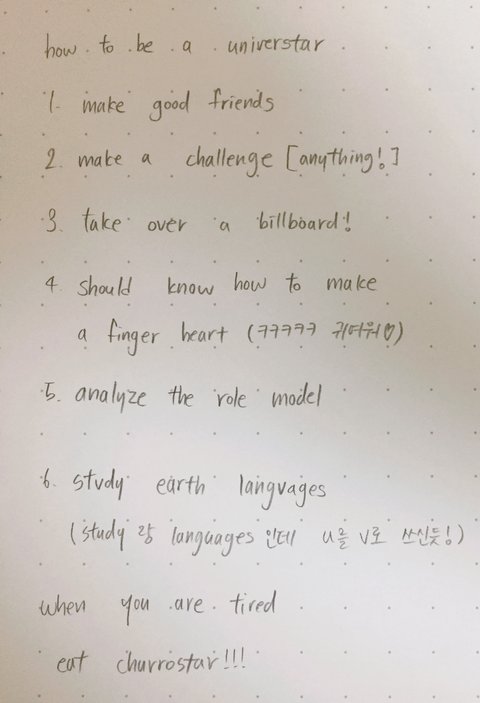 how to be a universtar
1. make good friends
2. make a challenge [anything!]
3. take over a billboard!
4. should know how to make
a finger heart (ㅋㅋㅋㅋㅋ 귀여워♡)
5. analyze the role model
6. stvdy earth langvages
(study 랑 languages 인데 u를 v로 쓰신듯!)
when you are tired
eat churrostar!!!